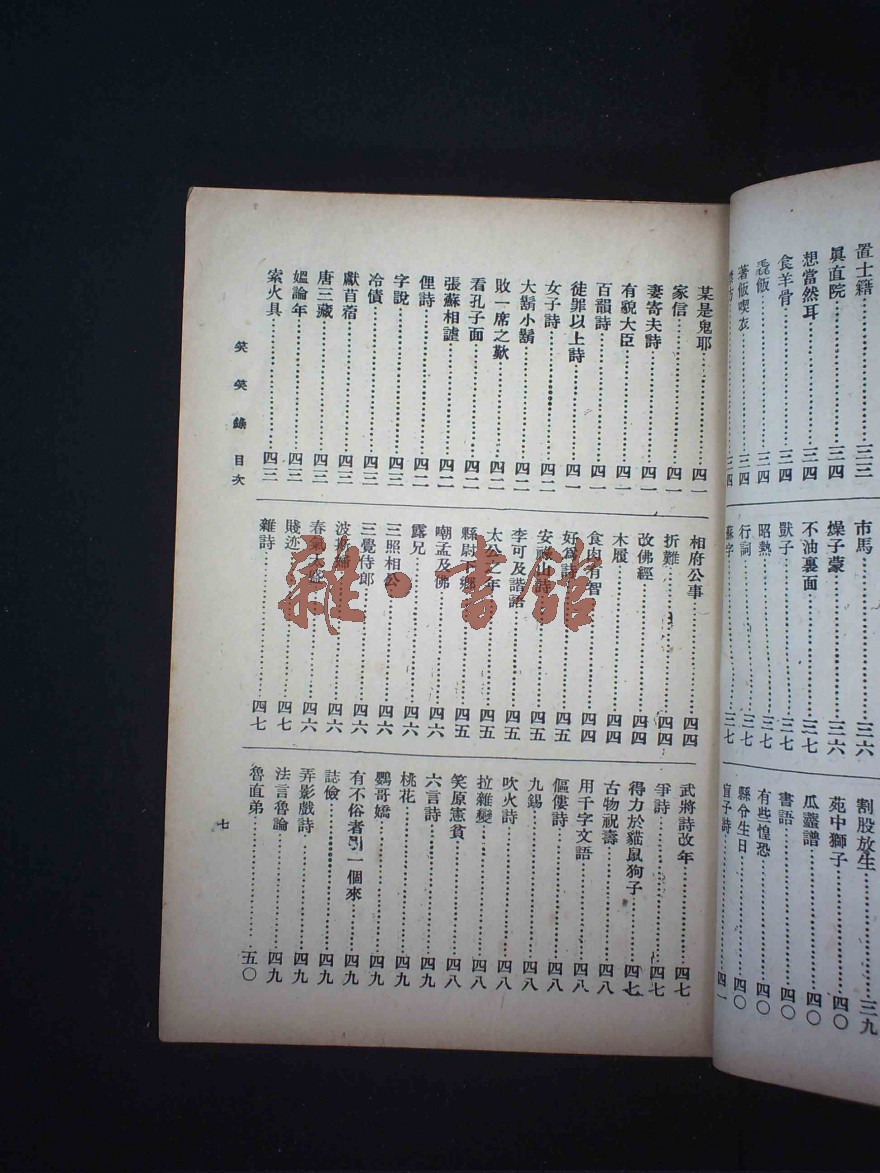 置士籍……三三
眞直院……三四
想當然耳……三四
食羊骨……三四
毳飯……三四
著飯喫衣……三四
市馬……三六
燥子蒙……三六
不油裏面……三七
獃子……三七
昭熱……三七
行詞……三七
蘇字……三七
割股放生……三九
苑中獅子……四〇
瓜虀譜……四〇
書語……四〇
有些惶恐……四〇
縣令生日……四〇
盲子詩……四一
某是鬼耶……四一
家信……四一
妻寄夫詩……四一
有貌大臣……四一
百韻詩……四一
徒罪以上詩……四一
女子詩……四二
大鬍小鬍……四二
敗一席之歡……四二
看孔子面……四二
張蘇相謔……四二
俚詩……四二
字說……四三
冷債……四三
獻苜蓿……四三
唐三藏……四三
媼論年……四三
索火具……四三
相府公事……四四
折難……四四
改佛經……四四
木履……四四
食肉有智……四四
好爲詩……四五
安祿山詩……四五
李可及諧謔……四五
太公之年……四五
縣尉下鄉……四五
嘲孟及佛……四六
露兄……四六
三照相公……四六
三覺侍郎……四六
波斯婦……四六
春氣太盛……四六
賤迹……四七
雜詩……四七
武將詩改年……四七
爭詩……四七
得力於貓鼠狗子……四七
古物祝壽……四八
用千字文語……四八
傴僂詩……四八
九錫……四八
吹火詩……四八
拉雜變……四八
笑原憲貧……四八
六言詩……四九
桃花……四九
鸚哥嬌……四九
有不俗者引一個來……四九
誌儉……四九
弄影戲詩……四九
法言魯論……四九
魯直弟……五〇
笑笑錄 目次
七
雜·書館